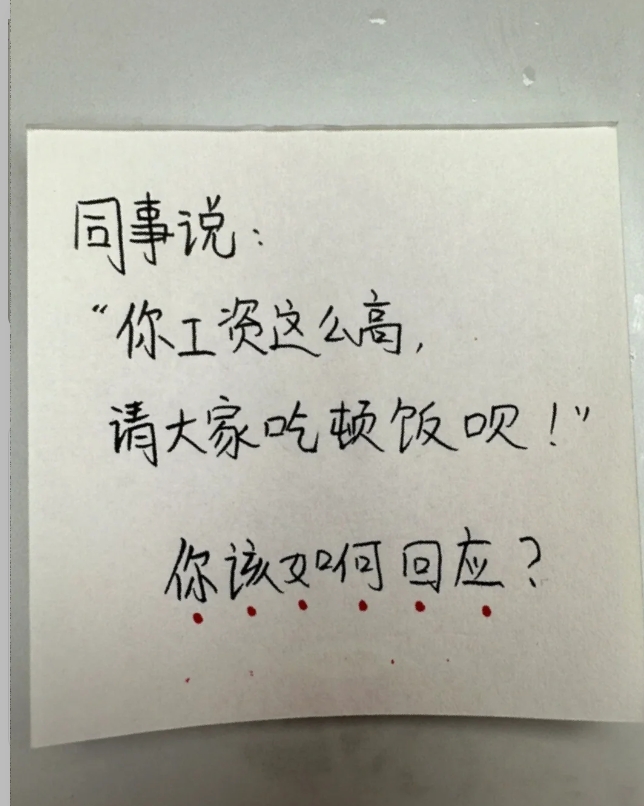 同事说：
“你工资这么高，
请大家吃顿饭呗！”
你该如何回应？